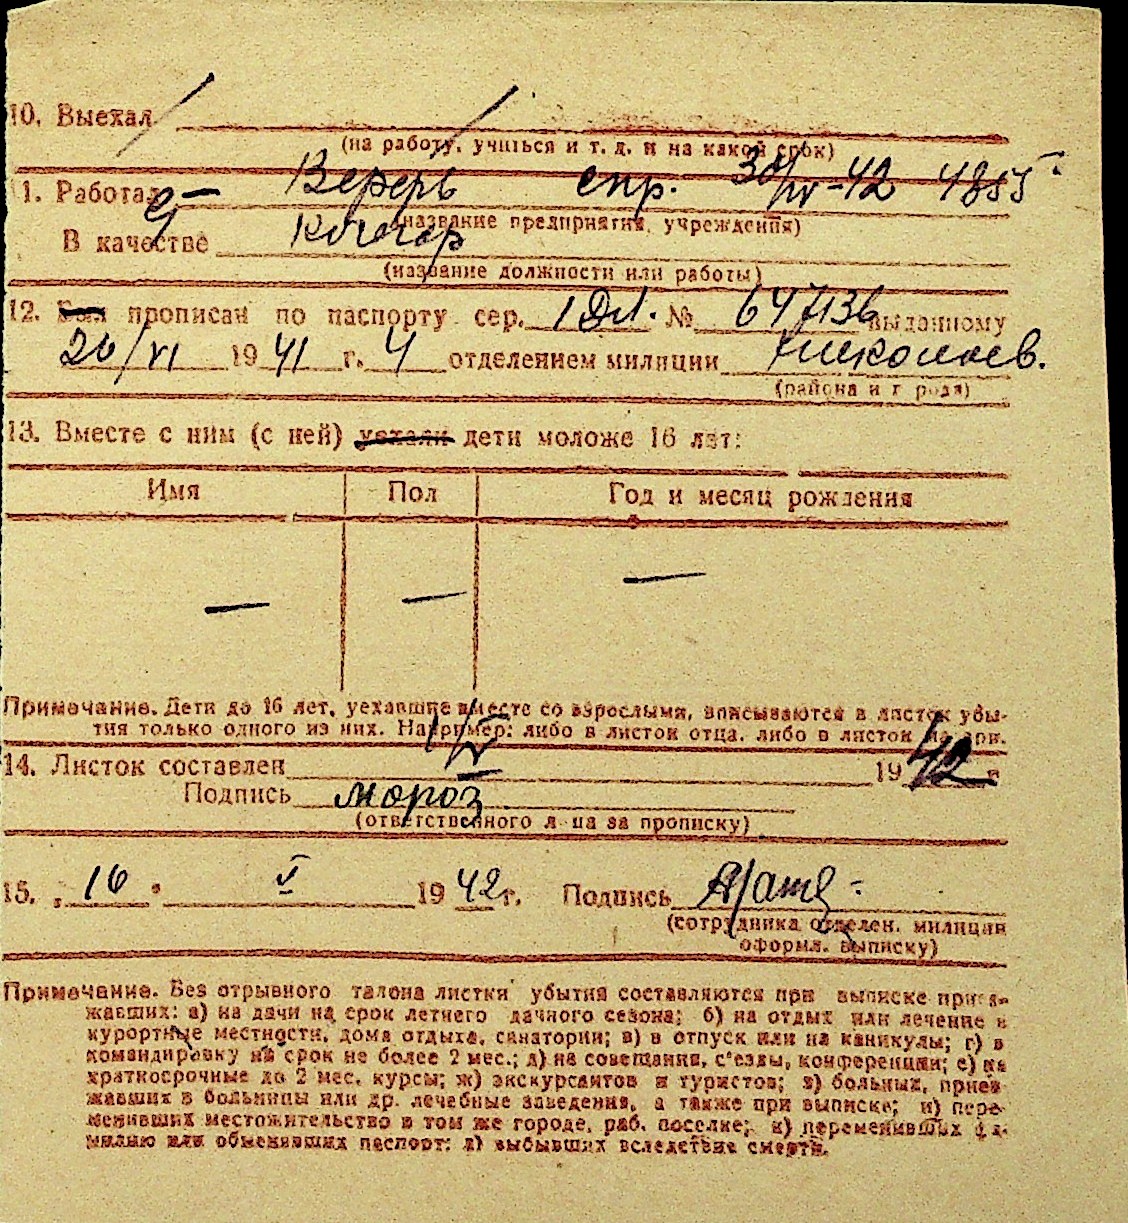 10. Выехал
(на работу, учиться и т. д. и на какой срок)
1. Работал спр. 30/IV-42 4855
(название предприятия, учреждения)
В качестве Кочегар
(название должности или работы)
12. Был прописан по паспорту сер. 1 Дл. № 647136 выданному
20/VI 1941 г. 4 отделением милиции Николаев.
(района и города)
13. Вместе с ним (с ней) уехали дети моложе 16 лет:
Имя Пол Год и месяц рождения
— — —
Примечание. Дети до 16 лет, уехавшие вместе со взрослыми, вписываются в листок убы-
тия только одного из них. Например: либо в листок отца, либо в листок
14. Листок составлен 1/V 1942 г
Подпись Мороз
(ответственного лица за прописку)
15. „16" V 1942 г. Подпись
(сотрудника отделен. милиции
оформ. выписку)
Примечание. Без отрывного талона листки убытия составляются при выписке приез-
жавших: а) на дачи на срок летнего дачного сезона; б) на отдых или лечение в
курортные местности, дома отдыха, санатории; в) в отпуск или на каникулы; г) в
командировку на срок не более 2 мес.; д) на совещания, с'езды, конференции; е) на
краткосрочные до 2 мес. курсы; ж) экскурсантов и туристов; з) больных, приез-
жавших в больницы или др. лечебные заведения, а также при выписке; и) пере-
менивших местожительство в том же городе, раб. поселке; к) переменивших фа-
милию или обменявших паспорт; л) выбывших вследствие смерти.